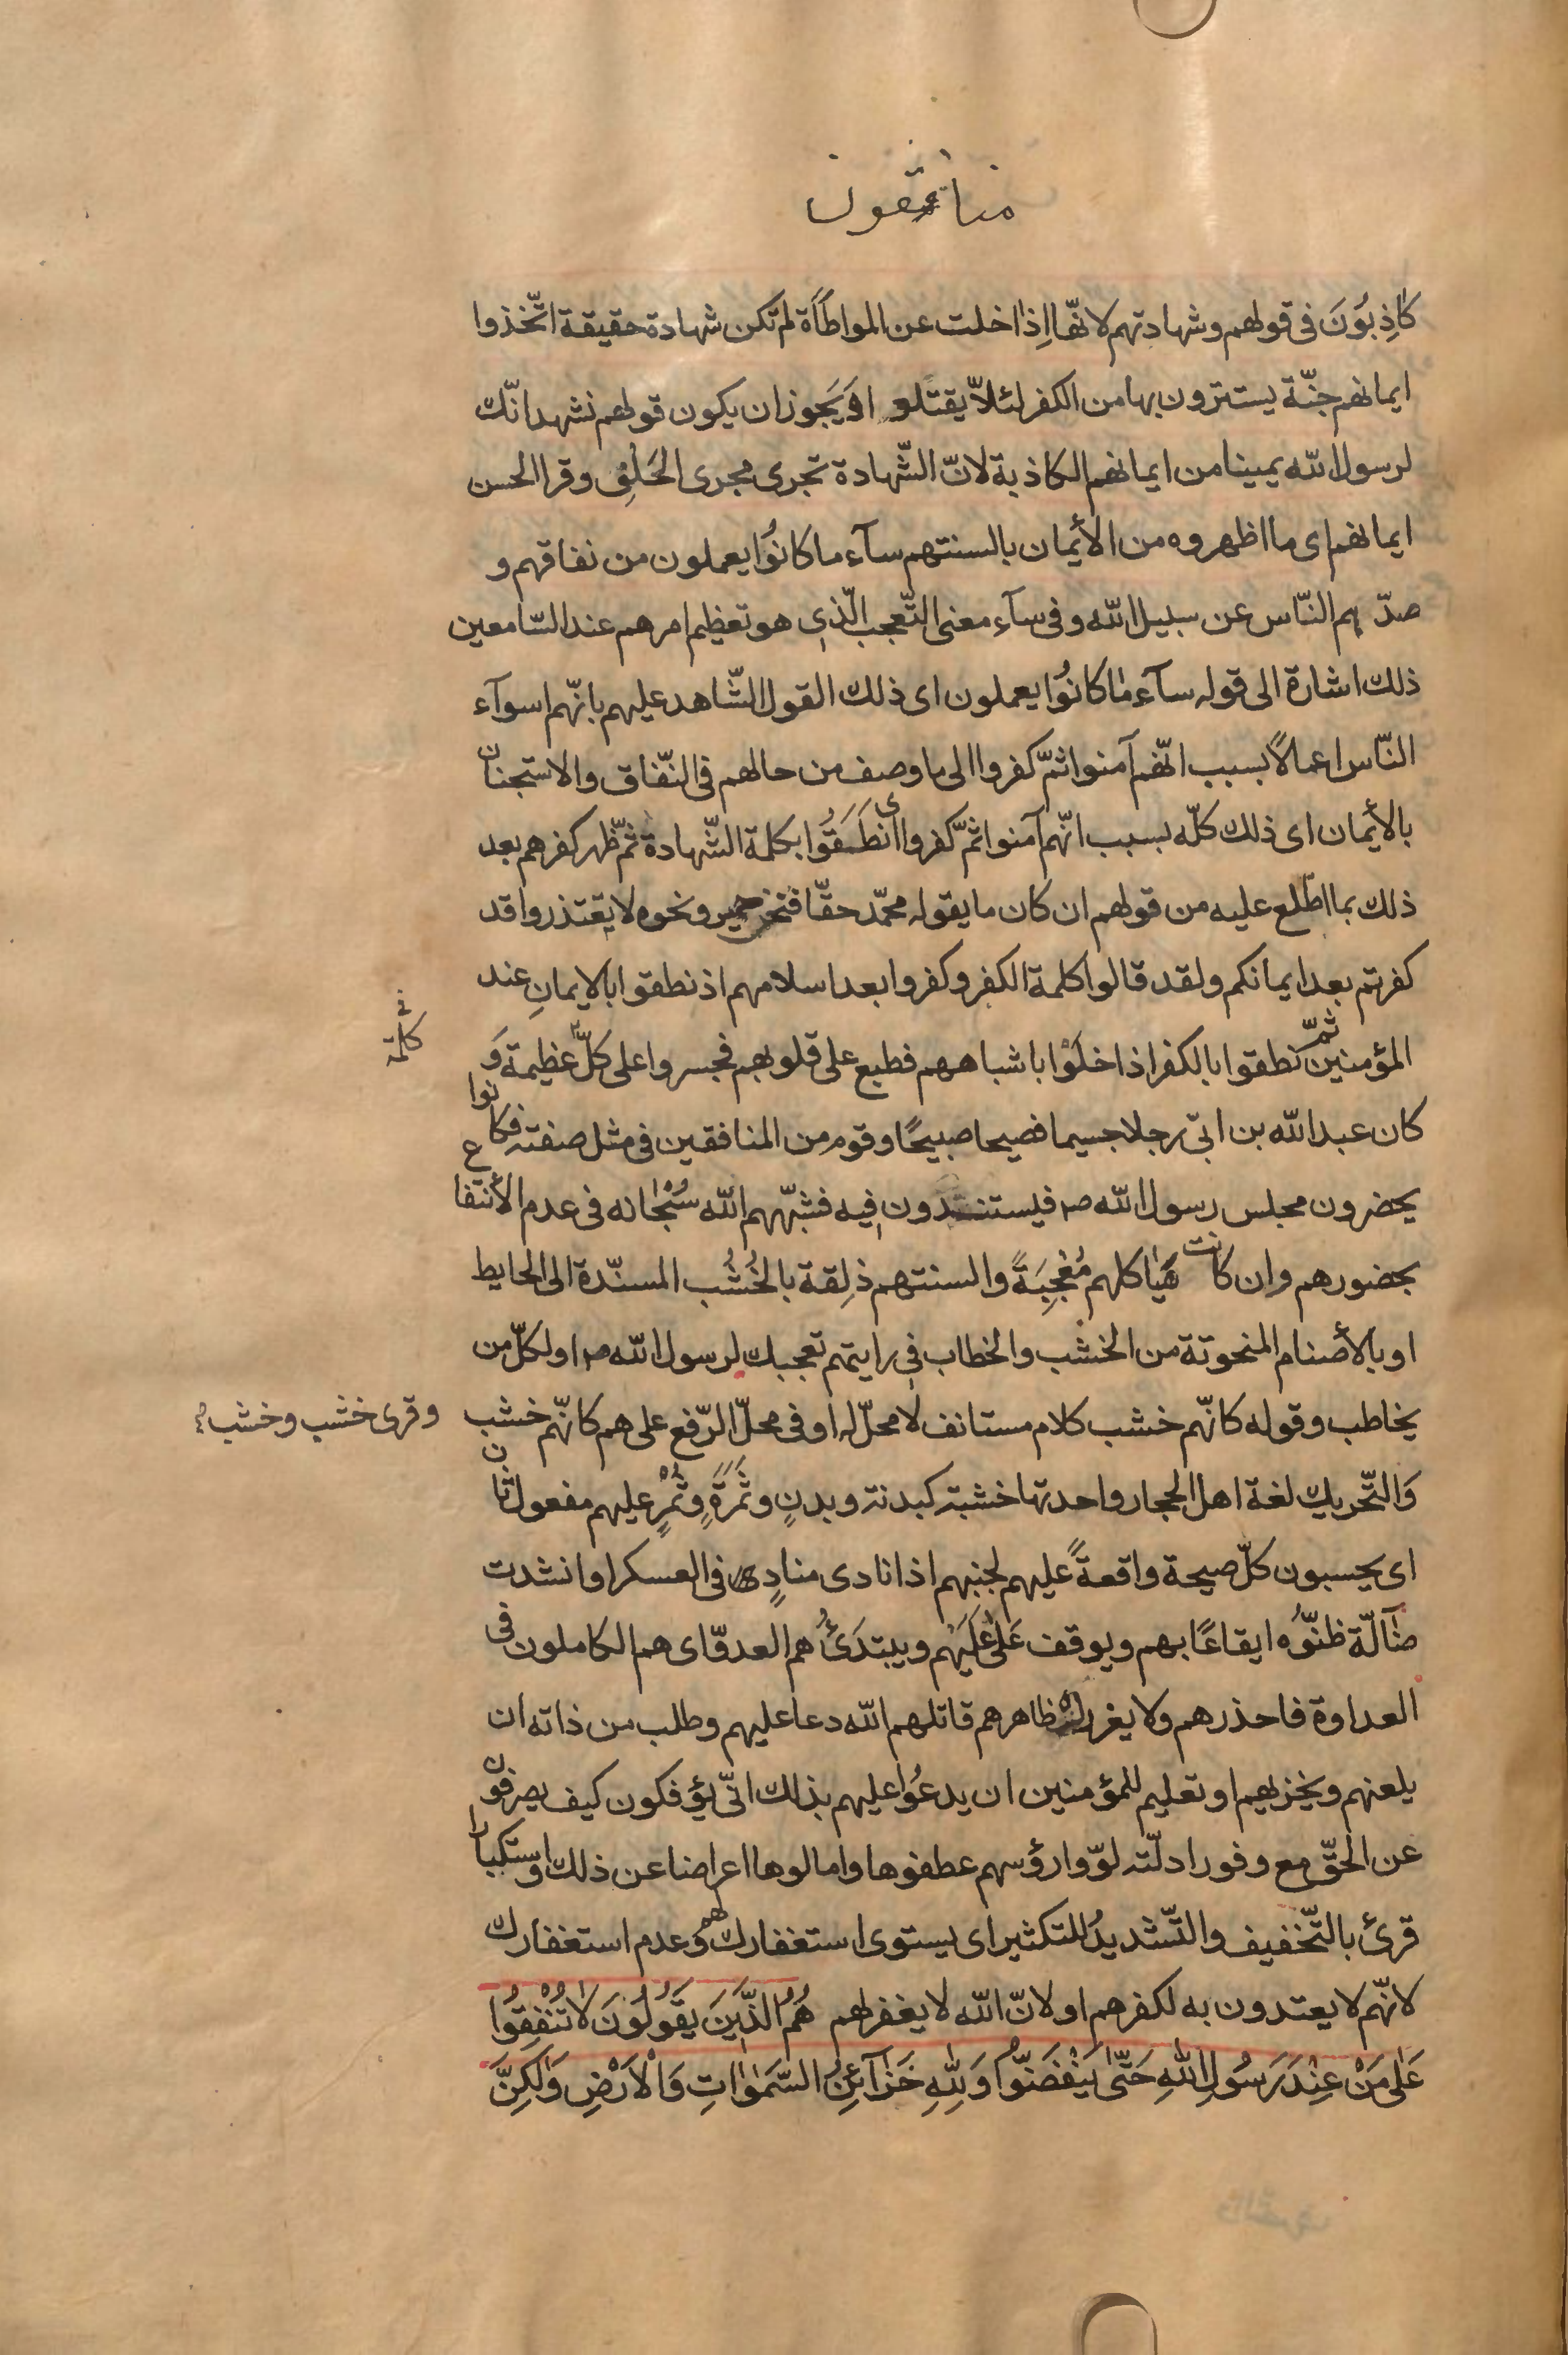 منافقون
كاذِبوُنَ فى قولهم وشهادتهم لانّها اِذا خلت عن المواطأة لم تكن شهادة حقيقة اتّخذوا
ايمانهم جنّة يستترون بها من الكفر لئلاّ يقتلو اوَ يَجوز ان يكون قولهم نشهد انّك
لرسول الله يمينا من ايمانهم الكاذبة لانّ الشّهادة تجرى مجرى الحَلْفِ وقرا الحسن
ايمانهم اى ما اظهروه من الأيمان بالسنتهم سآء ما كانوُا يعملون من نفاقهم و
صدّهم النّاس عن سبيل الله وفى سآء معنى التّعجب الّذى هو تعظيم امرهم عند السّامعين
ذلك اشارة الى قوله سآء ما كانوُا يعملون اى ذلك القول الشّاهد عليهم بانّهم اسوآء
النّاس اعمالاً بسبب انّهم آمنوا ثمّ كفروا الى ما وصف من حالهم فى النّفاق والاستجنان
بالأيمان اى ذلك كلّه بسبب انّهم آمنوا ثمّ كفروا اى نطَقَوُا بكلمة الشّهادة ثمّ ظهر كفرهم بعد
ذلك بما اطّلع عليه من قولهم ان كان ما يقوله محمّد حقّا فنحن حمير ونحوه لا يعتذروا قد
كفرتم بعد ايمانكم ولقد قالوا كلمة الكفر وكفروا بعد اسلامهم اذ نطقوا بالايمانِ عند
المؤمنين ثمّ نطقوا بالكفر اذا خلَوْا باشباههم فطبع على قلوبهم فجسروا على كلّ عظيمة وَ
فى كلمة
كان عبد الله بن ابىّ رجلا جسيما فصيحا صبيحًا وقوم من المنافقين فى مثل صفته فكانوا
يحضرون مجلس رسول الله صه فيستندون فيه فشبّههم الله سُبْحانه فى عدم الأنتفاع
بحضورهم وان كانت هَياكلهم مُعْجِبَةً والسنتهم ذلِقة بالخُشُب المسنّدة الى الحايط
او بالأصنام المنحوتة من الخشب والخطاب فى رايتهم تعجبك لرسول الله صه او لكلّ من
يخاطب وقوله كانّهم خشب كلام مستانف لا محلّ له او فى محلّ الرّفع على هم كانّهم خشب
وقرى خشب وخشب
وَالتّحريك لغة اهل الحجاز واحدتها خشبة كبدنة وبدنٍ وثَمَرَةٍ وثُمُرٍ عليهم مفعول ثان
اى يحسبون كلّ صيحة واقعةً عليهم لجنبهم اذا نادى منادٍ فى العسكر او انشدت
ضآلّة ظنّوُه ايقاعًا بهم ويوقف عَلى عَلَيْهم ويبتدَئُ هم العدوّ اى هم الكاملون فى
العداوة فاحذرهم ولا يغررك ظاهرهم قاتلهم الله دعا عليهم وطلب من ذاته ان
يلعنهم ويخزيهم او تعليم للمؤمنين ان يدعُوا عليهم بذلك انّى يؤفكون كيف يصرفون
عن الحقّ مع وفور ادلّته لوّوا رؤسهم عطفوها وامالوها اعراضا عن ذلك واستكبارا
قرئ بالتّخفيف والتّشديدُ للتكثير اى يستوى استغفارك لهم وعدم استغفارك
لانّهم لا يعتدون به لكفرهم او لانّ الله لا يغفر لهم هُمُ الَّذينَ يَقوُلوُنَ لا تُنْفِقوُا
عَلى مَنْ عِنْدَ رَسُولِ اللهِ حَتّى يَنْفَضّوُا وَلِلّهِ خَزآئِنُ السَّمواتِ وَالْاَرْضِ وَلكِنَّ